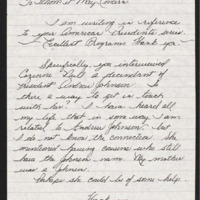 To Whom it May Concern
I am writing in reference
to your American Presidents series.
Excellent Programs Thank you.
Specifically you interviewed
a decendant of
President Andrew Johnson. Is
there a way to get in touch
with her? I have heard all
my life that in some way I am
related to Andrew Johnson, but
I do not know the connection. She
mentioned having cousins who still
have the Johnson name. My mother
was a Johnson.
Perhaps she could be of some help.
Thank